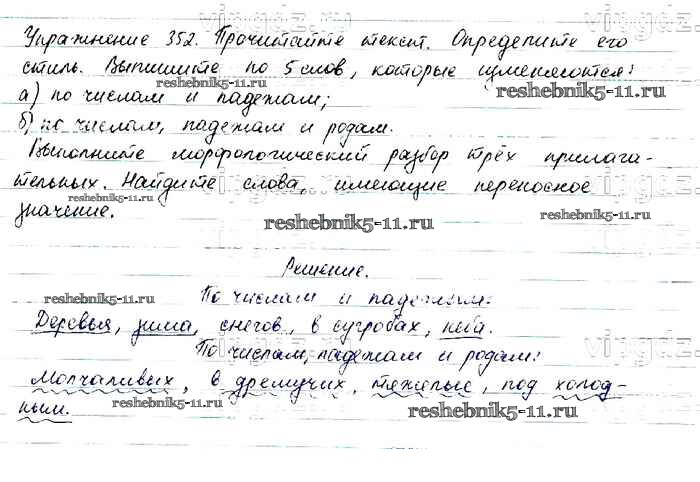 Упражнение 352. Прочитайте текст. Определите его
стиль. Выпишите по 5 слов, которые изменяются:
а) по числам и падежам;
б) по числам, падежам и родам.
Выполните морфологический разбор трёх прилага-
тельных. Найдите слова, имеющие переносное
значение.
Решение.
По числам и падежам:
Деревья, зима, снегов, в сугробах,
По числам, падежам и родам:
Молчаливых, в дремучих, тяжелые, под холод-
ным.
vingdz.ru
reshebnik5-11.ru
reshebnik5-11.ru
reshebnik5-11.ru
reshebnik5-11.ru
reshebnik5-11.ru
reshebnik5-11.ru
vingdz.ru
reshebnik5-11.ru
reshebnik5-11.ru